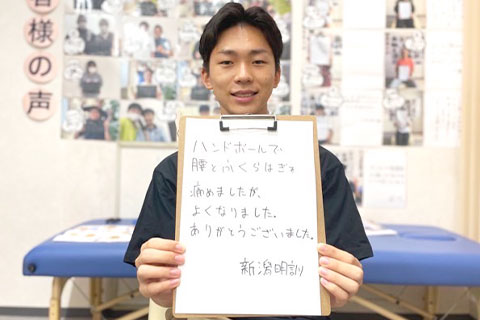 様の声
ハンドボールで、
腰とふくらはぎを
痛めましたが、
よくなりました。
ありがとうございました。
新潟明訓